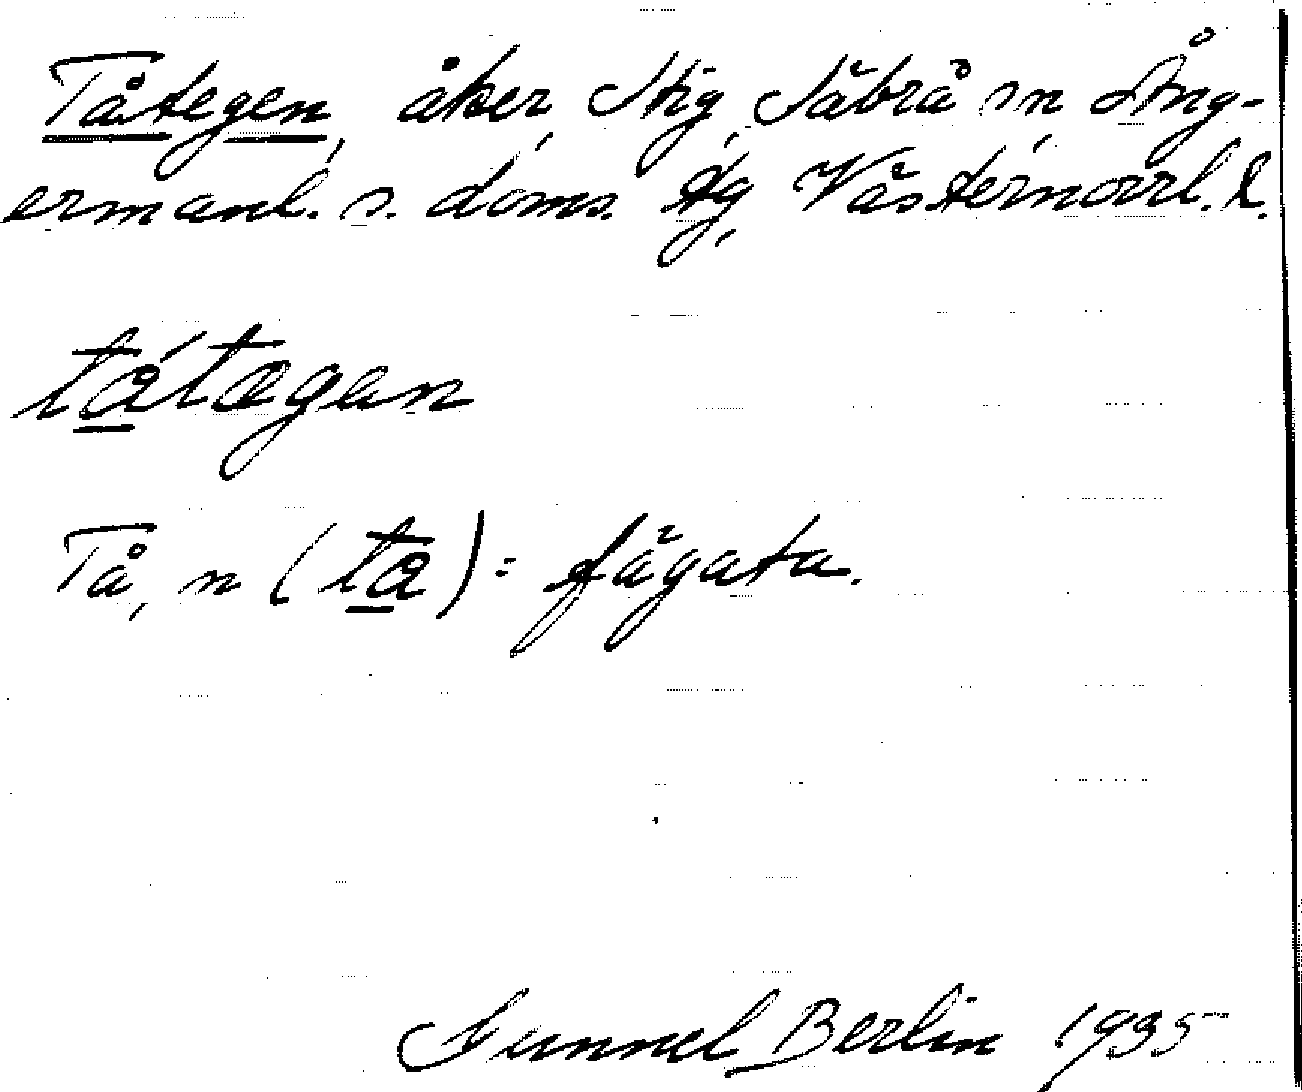 Tåtegen, åker, Stig, Säbrå sn, Ång-
ermanl. s. doms. tg, Västernorrl. l.
tåtægen
Tå, n (ta) = fägata.
Gunnel Berlin 1935